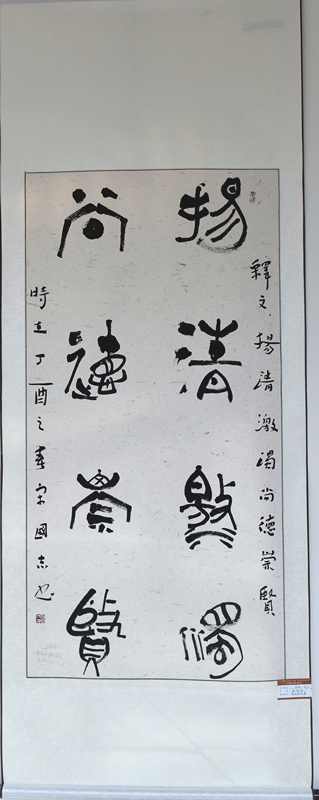 釋文:揚清激濁尚德崇賢
揚清激濁
尚德崇賢
時在丁酉之春宋國志書